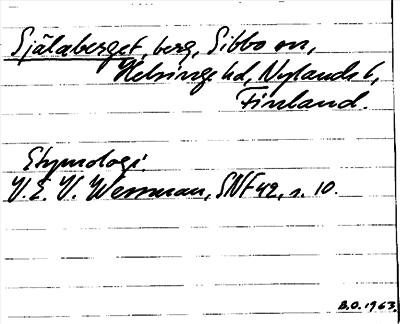 Själaberget, berg, Sibbo sn,
Helsinge hd, Nylands l,
Finland.
Etymologi.
V. E. V. Wessman, SNF 42, s. 10.
B.O. 1963.